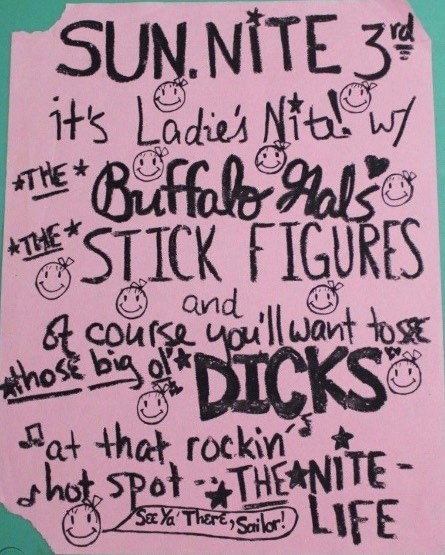 SUN. NITE 3rd
it's Ladie's Nite! w/
*THE* Buffalo Gals
*THE* STICK FIGURES
and
of course you'll want to see
those big ol' DICKS
at that rockin'
hot spot - THE NITE-
LIFE
See Ya' There, Sailor!